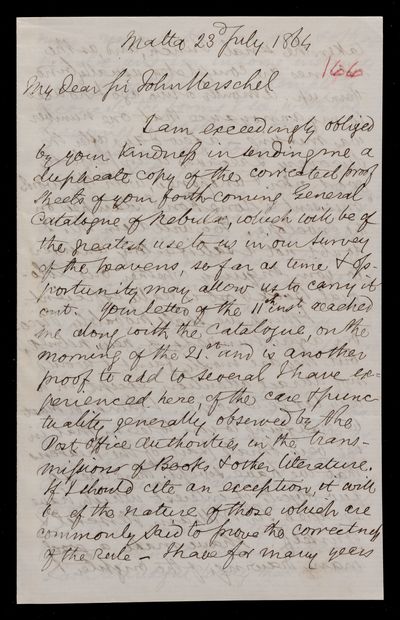 Malta 23d July 1864
166
My Dear Sir John Herschel
I am exceedingly obliged
by your kindness in sending me a
duplicate copy of the corrected proof
sheets of your forthcoming General
Catalogue of Nebulæ, which will be of
the greatest use to us in our survey
of the heavens, so far as time & op-
portunity may allow us to carry it
out. Your letter of the 11th inst. reached
me along with the Catalogue, on the
morning of the 21st and is another
proof to add to several I have ex-
perienced here, of the care & punc-
tuality generally observed by the
Post Office Authorities in the trans-
missions of Books & other literature.
If I should cite an exception, it will
be of the nature of those which are
commonly said to prove the correctness
of the rule – I have for many years